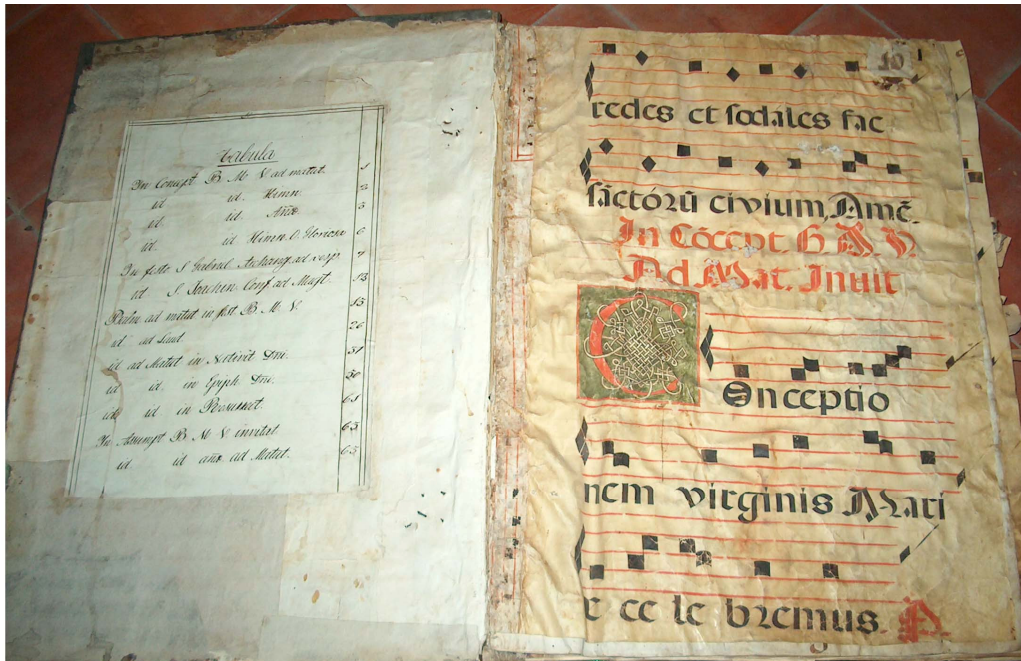 tabula
In Concept B M V ad matut. 1
id id. Himn 2
id. id. Añæ 3
id. id Himn O Gloriosa 6
In festo S. Gabriel. Archang. ad vesp 7
id S. Joachin Conf ad Magt. 13
Psalm ad matut in fest B. M. V. 15
id ad Laud. 26
id ad Matut in Nativit Dni.
id id. in Epiph Dni.
id id in
In Assumpt B M V invitat 63
id id añæ ad Matut. 63
10
redes et sodales fac
sãctórũ civium, Amẽ.
In Cõcept. B. M. V.
Ad Mat. Inuit
COnceptio
nem virginis Mari
e ce le bremus. P.